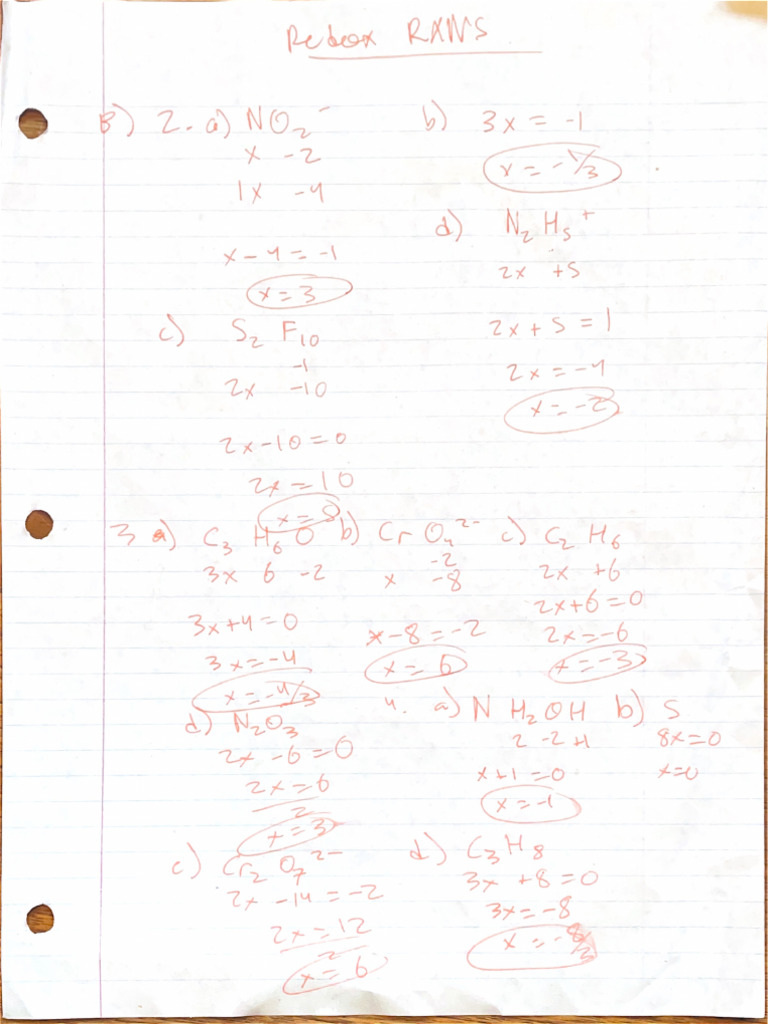 Redox RXNS
B) 2. a) NO₂⁻
x -2
1x -4
x - 4 = -1
x = 3
b) 3x = -1
x = -1/3
c) S₂ F₁₀
-1
2x -10
2x - 10 = 0
2x = 10
d) N₂ H₅⁺
2x +5
2x + 5 = 1
2x = -4
x = -2
3 a) C₃ H₆ O
3x 6 -2
3x + 4 = 0
3x = -4
x = -4/3
b) Cr O₄²⁻
-2
x -8
x - 8 = -2
x = 6
c) C₂ H₆
2x +6
2x + 6 = 0
2x = -6
x = -3
d) N₂O₃
2x - 6 = 0
2x = 6
2
x = 3
4. a) N H₂ O H
2 -2 +1
x + 1 = 0
x = -1
b) S
8x = 0
x = 0
c) Cr₂ O₇²⁻
2x - 14 = -2
2x = 12
2
x = 6
d) C₃ H₈
3x + 8 = 0
3x = -8